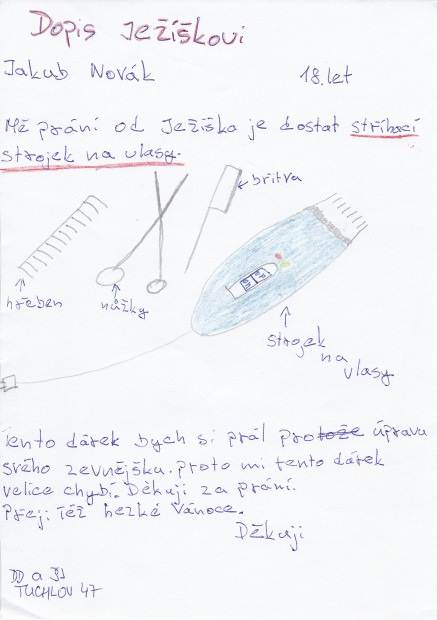 Dopis Ježíškovi
Jakub Novák 18. let
Mé práni od Ježíška je dostat stříhací
strojek na vlasy.
břitva
hřeben
nůžky
strojek
na
vlasy
Tento dárek bych si prál protože úpravu
svého zevnějšku. proto mi tento dárek
velice chybí. Děkuji za práni.
Přeji též hezké vánoce.
Děkuji
DD a ŠJ
TUCHLOV 47